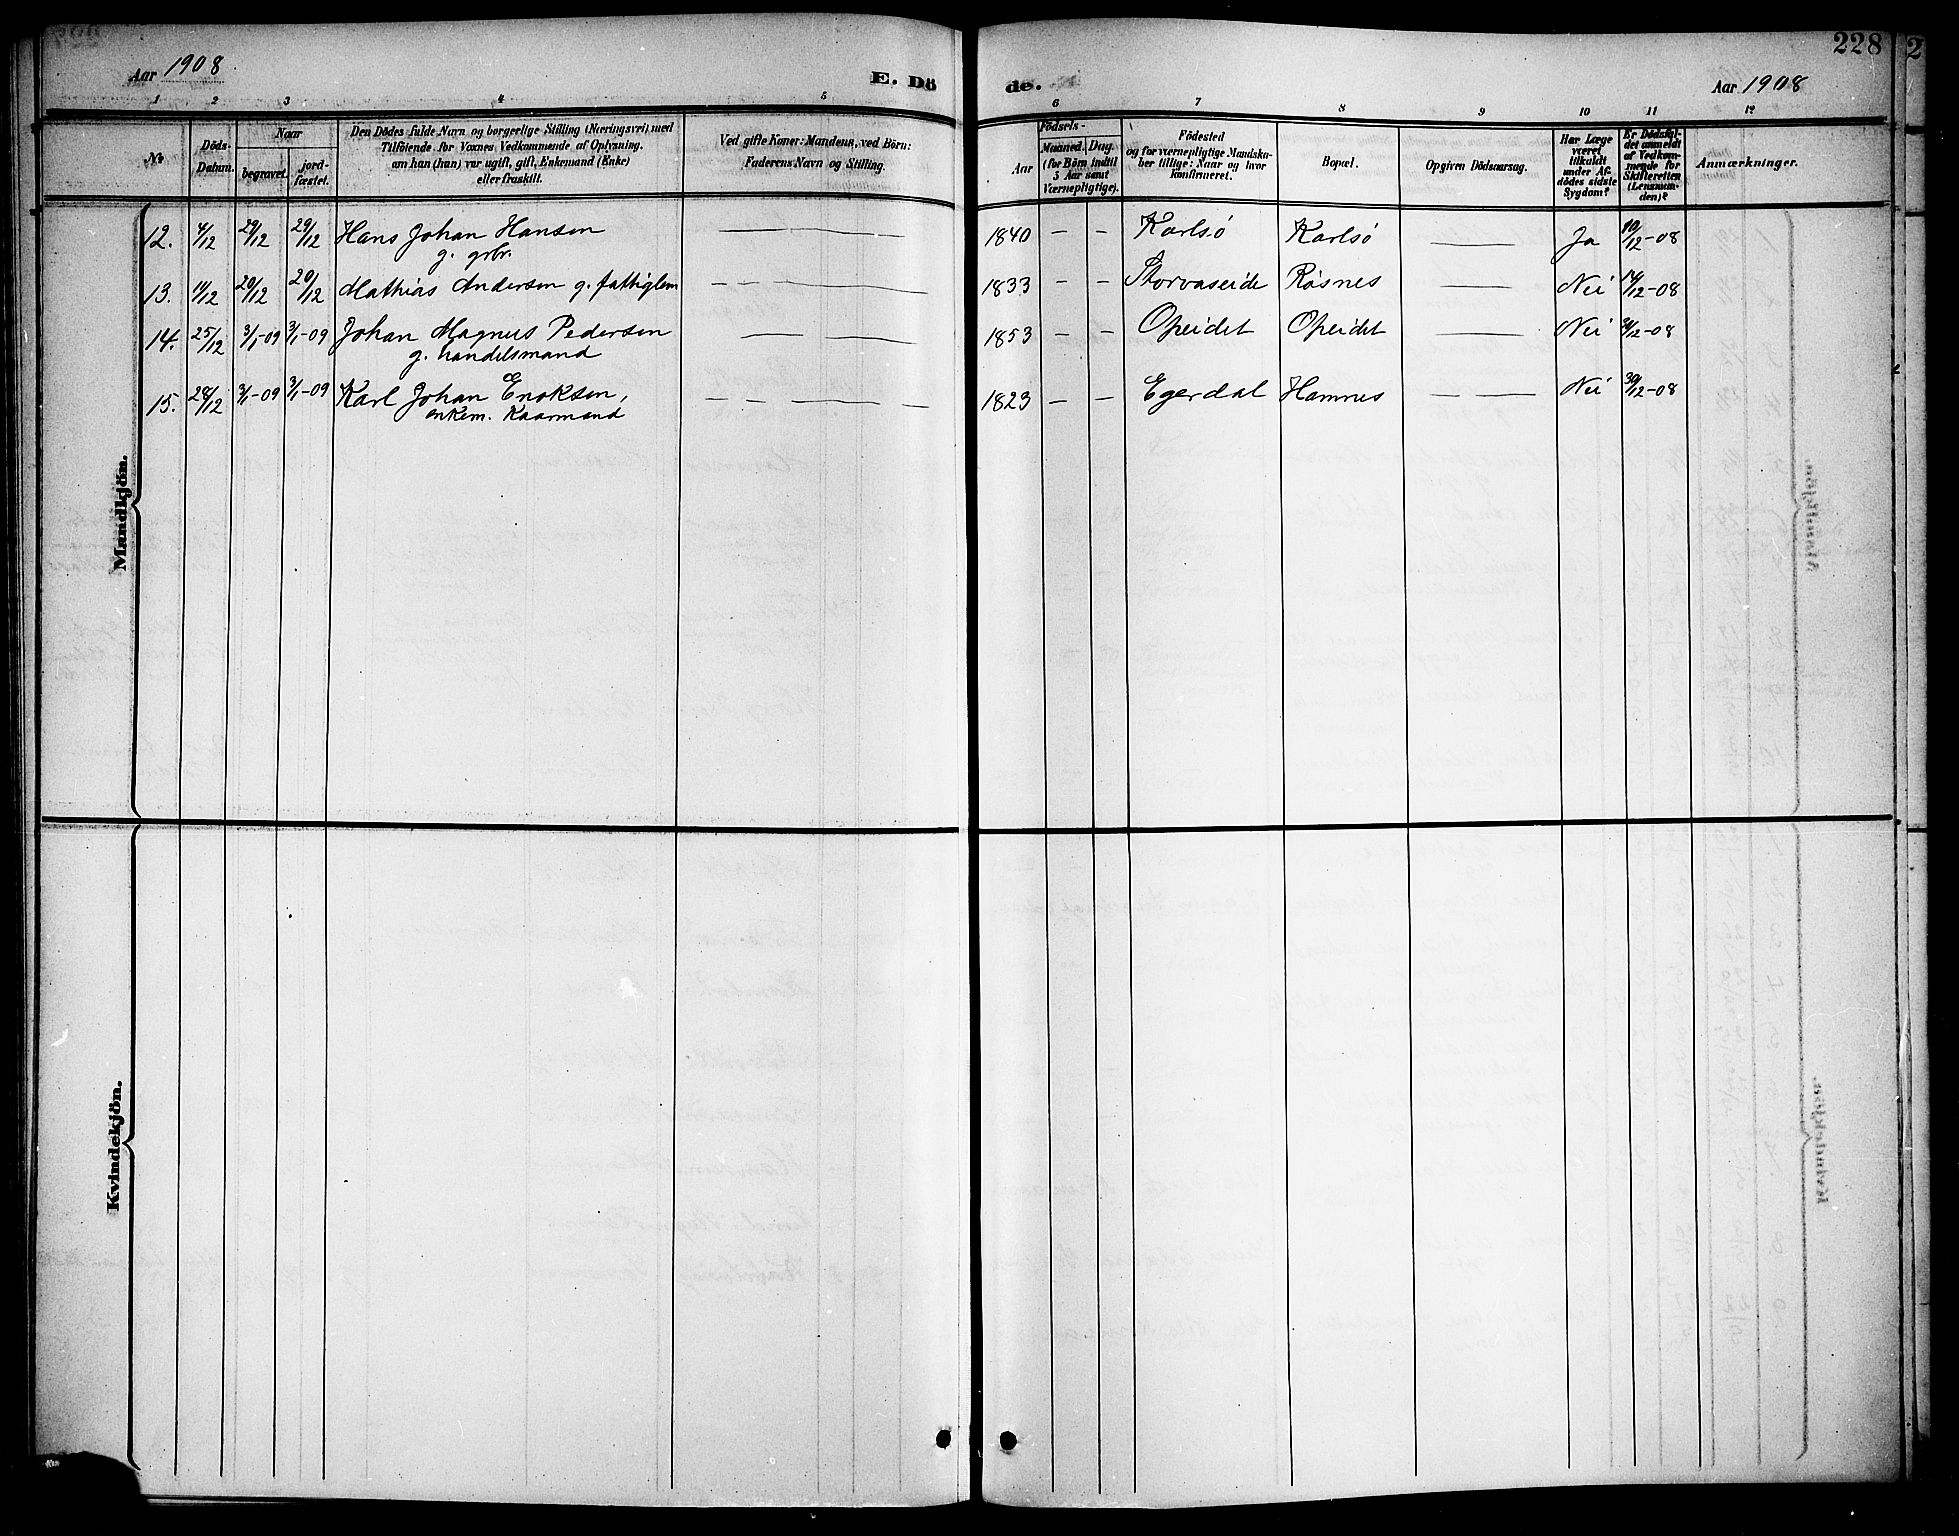 228
2
Aar 1908
E. Dö
de.
Aar 1908
1 2 3 4 5
6 7 8 9 10 11 12
No
Döds-
Datum.
Naar
begravet.
jord-
fæstet.
Den Dödes fulde Navn og borgerlige Stilling (Næringsvei) med
Tilföiende for Voxnes Vedkommende af Oplysning.
om han (hun) var ugift, gift, Enkemand (Enke)
eller fraskilt.
Ved gifte Koner: Mandens, ved Börn:
Faderens Navn og Stilling.
Födsels-
Aar
Maaned. Dag.
(for Börn indtil
5 Aar samt
Værnepligtige).
Födested
og for værnepligtige Mandska-
ber tillige: Naar og hvor
konfirmeret.
Bopæl.
Opgiven Dödsaarsag.
Har Læge
været
tilkaldt
under Af-
dödes sidste
Sygdom?
Er Dödsfal-
det anmeldt
af Vedkom-
mende for
Skifteretten
(Lensman-
den)?
Anmærkninger.
Mandkjön.
12. 4/12 29/12 29/12 Hans Johan Hansen — — — 1840 — — Karlsö Karlsö — Ja 10/12-08
g. grbr.
13. 11/12 20/12 20/12 Mathias Andersen g. fattiglem — — — — 1833 — — Storvaseide Røsnes — Nei 14/12-08
14. 25/12 3/1-09 3/1-09 Johan Magnus Pedersen — — 1853 — — Opeidet Opeidet — Nei 31/12-08
g. handelsmand
15. 28/12 3/1-09 3/1-09 Karl Johan Enoksen, — — — — 1823 — — Egerdal Hamnes — — Nei 30/12-08
enkem. Kaarmand
Kvindekjön.